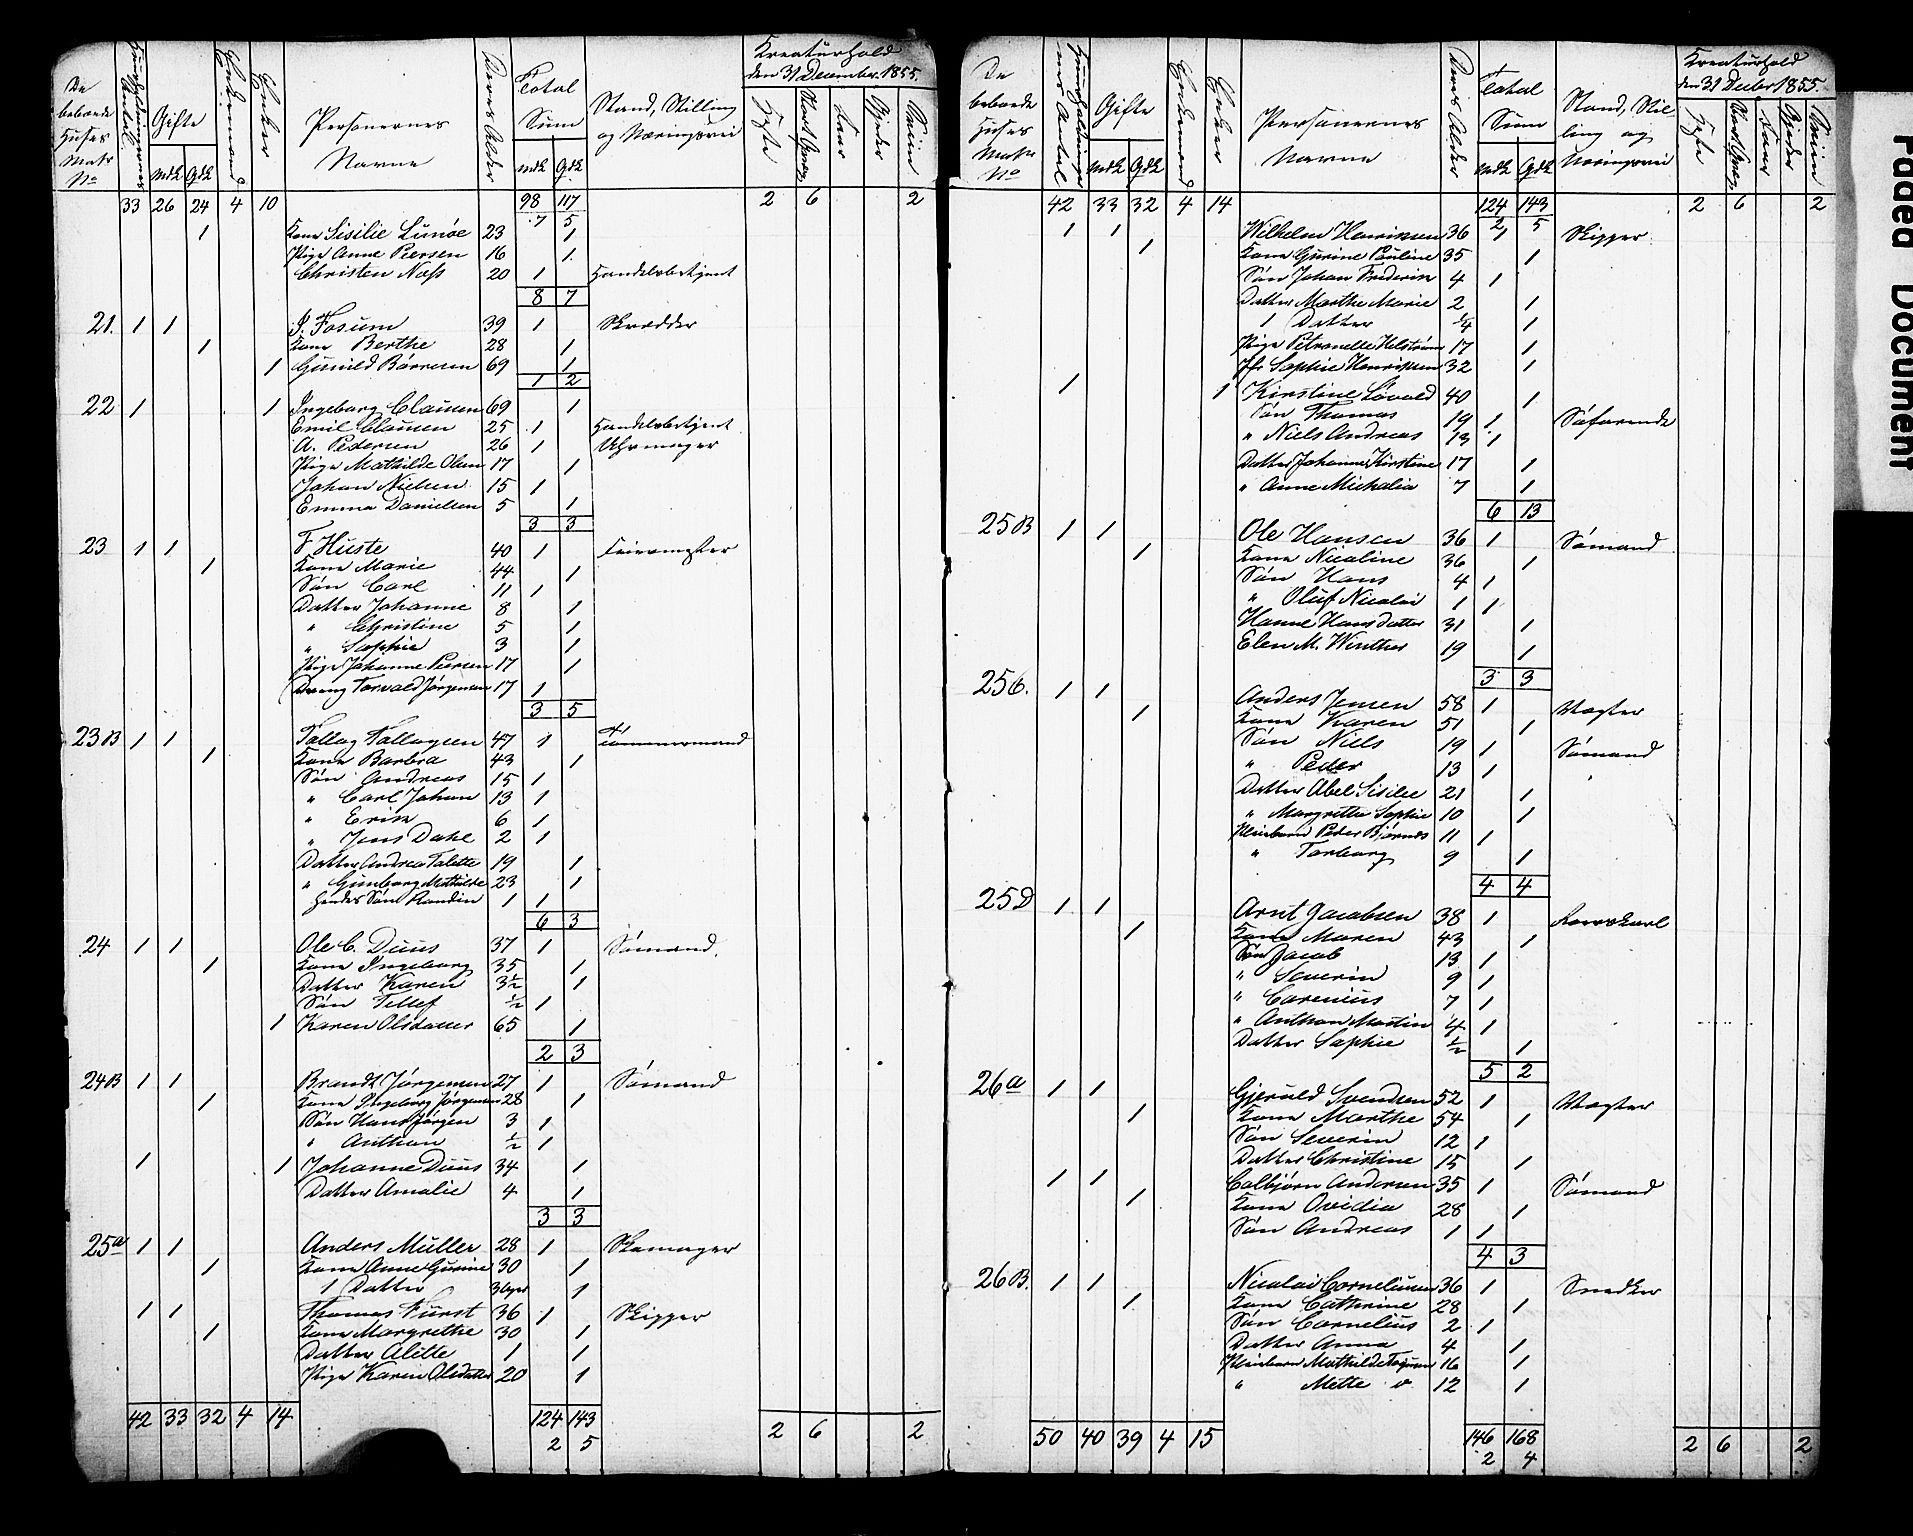 De beboede Huses Matr No | Huusholdningernes Antal | Gifte Mdk Qdk | Enkemænd | Enker | Personernes Navne | Deres Alder | Total Sum Mdk Qdk | Stand, Stilling og Næringsvei | Kreaturhold den 31 December 1855. Heste | Stort Qvæg | Faar | Gjeder | Sviin
33 26 24 4 10 98 117 2 6 2
7 5
1 Kone Sisilie Lunøe 23 1
Pige Anne Piersen 16 1
Christen Næss 20 1 Handelsbetjent
8 7
21. 1 1 J. Fosum 39 1 Skrædder
1 Kone Berthe 28 1
1 Gunild Børresen 69 1
1 2
22 1 1 Ingeborg Clausen 69 1
Emil Clausen 25 1 Handelsbetjent
A. Pedersen 26 1 Uhrmager
Pige Mathilde Olsen 17 1
Johan Nielsen 15 1
Emma Danielsen 5 1
3 3
23 1 1 F Huste 40 1 Feiermester
1 Kone Marie 44 1
Søn Carl 11 1
Datter Johanne 8 1
" Christine 5 1
" Sophie 3 1
Pige Johanne Piersen 17 1
Dreng Torvald Jørgensen 17 1
3 5
23B 1 1 Tallag Tallagsen 47 1 Tømmermand
1 Kone Barbra 43 1
Søn Andreas 15 1
" Carl Johan 13 1
" Erik 6 1
" Jens Dahl 2 1
Datter Andrea Talette 19 1
" Gunborg Mathilde 23 1
Hendes Søn Randin 1 1
6 3
24 1 1 Ole C. Duus 37 1 Sømand.
1 Kone Ingeborg 35 1
Datter Karen 3½ 1
Søn Tellef ½ 1
1 Karen Olsdatter 65 1
2 3
24B 1 1 Brandt Jørgensen 27 1 Sømand
1 Kone Ingeborg Jørgensen 28 1
Søn Hans Jørgen 3 1
" Anthon ½ 1
1 1 Johanne Duus 34 1
Datter Amalie 4 1
3 3
25a 1 1 Anders Müller 28 1 Skomager
1 Kone Anne Gurine 30 1
1 Datter 1
1 1 Thomas Furst 36 1 Skipper
1 Kone Margrethe 30 1
Datter Alette 1 1
Pige Karen Olsdatter 20 1
42 33 32 4 14 124 143 2 6 2
2 5
De beboede Huses Matr No | Huusholdningernes Antal | Gifte Mdk Qdk | Enkemænd | Enker | Personernes Navne | Deres Alder | Total Sum Mdk Qdk | Stand, Stilling og Næringsvei | Kreaturhold den 31 Decber 1855. Heste | Stort Qvæg | Faar | Gjeder | Sviin
42 33 32 4 14 124 143 2 6 2
2 5
1 1 Wilhelm Henriksen 36 1 Skipper
1 Kone Gurine Pauline 35 1
Søn Johan Frederik 4 1
Datter Marthe Marie 2 1
1 Datter ¼ 1
Pige Petronelle Helstrøm 17 1
Jfr Sophie Henriksen 32 1
1 1 Kirstine Løvold 40 1
Søn Thomas 19 1 Søfarende
" Niels Andreas 13 1
Datter Johanne Kirstine 17 1
" Anne Michalia 7 1
6 13
25B 1 1 Ole Hansen 36 1 Sømand
1 Kone Nicoline 36 1
Søn Hans 4 1
" Oluf Nicolai 1 1
Hanne Hansdatter 31 1
Elen M. Winther 19 1
3 3
25C. 1 1 Anders Jensen 58 1 Vægter
1 Kone Karen 51 1
Søn Niels 19 1 Sømand
" Peder 13 1
Datter Abel Sisilie 21 1
" Margrethe Sophie 10 1
Pleiebarn Peder Bjørnds 11 1
" Torborg 9 1
4 4
25D 1 1 Arnt Jacobsen 38 1 Roerskarl
1 Kone Maren 43 1
Søn Jacob 13 1
" Severin 9 1
" Carenius 7 1
" Anthon Martin 4 1
Datter Sophie ½ 1
5 2
26a 1 1 Gjeruld Svendsen 52 1 Vægter
1 Kone Marthe 54 1
Søn Severin 12 1
Datter Christine 15 1
1 1 Colbjørn Andersen 35 1 Sømand
1 Kone Ovidia 28 1
Søn Andreas 1 1
4 3
26B. 1 1 Nicolai Corneliusen 36 1 Snedker
1 Kone Cathrine 28 1
Søn Cornelius 2 1
Datter Anna 4 1
Pleiebarn Mathilde 16 1
" Mette 12 1
50 40 39 4 15 146 168 2 6 2
2 4
Faded Document